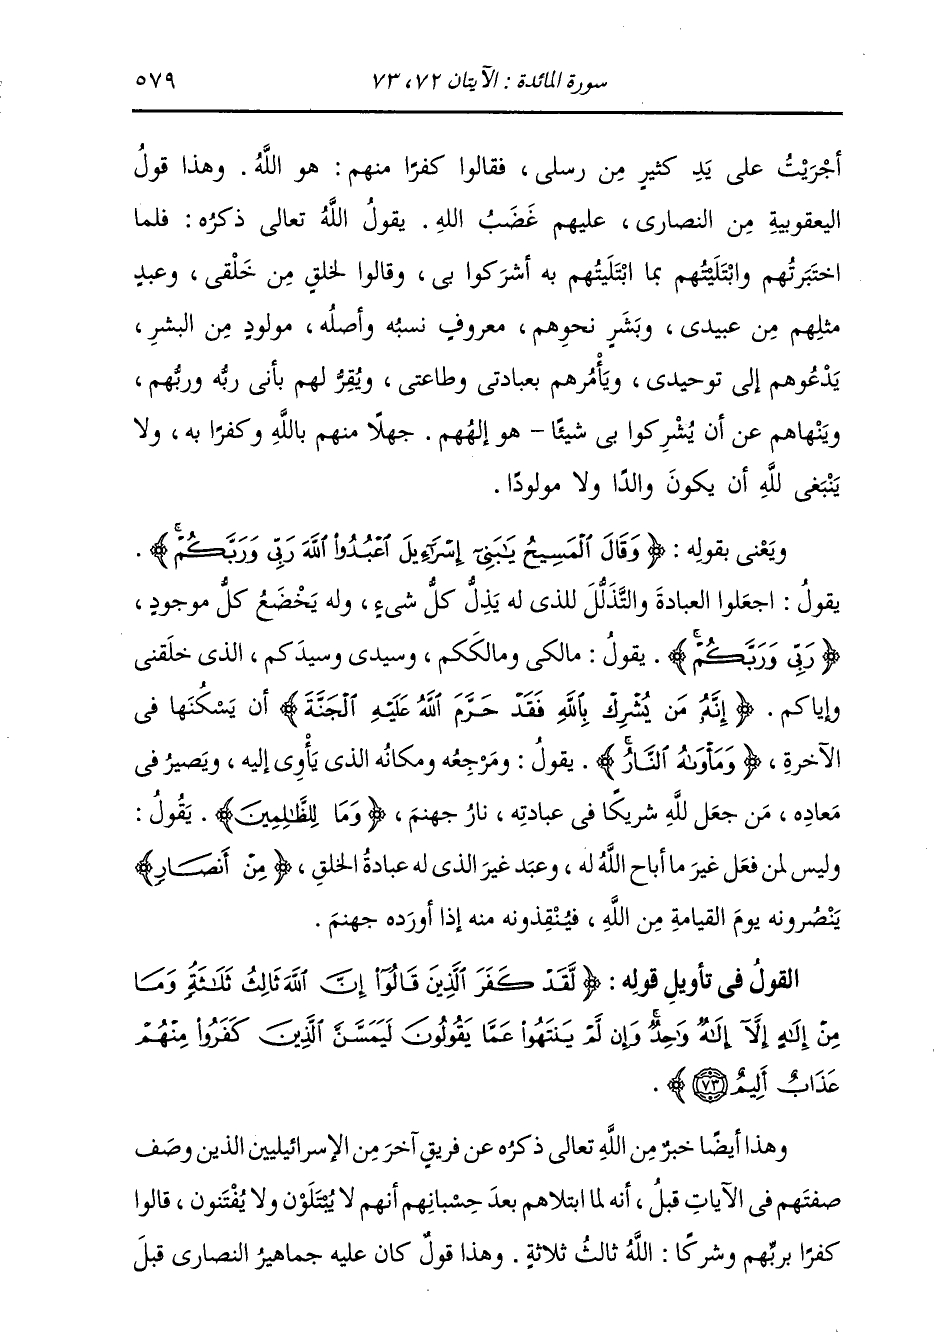 سورة المائدة : الآيتان ٧٢، ٧٣ ٥٧٩
أجْرَيْتُ على يَدِ كثيرٍ مِن رسلى ، فقالوا كفرًا منهم : هو اللَّهُ . وهذا قولُ
اليعقوبيةِ مِن النصارى ، عليهم غَضَبُ اللهِ . يقولُ اللَّهُ تعالى ذكرُه : فلما
اختَبرتُهم وابْتَلَيْتُهم بما ابْتَلَيتُهم به أشرَكوا بى ، وقالوا لخلقٍ مِن خَلْقى ، وعبدٍ
مثلِهم مِن عبيدى ، وبَشَرٍ نحوِهم ، معروفٍ نسبُه وأصلُه ، مولودٍ مِن البشرِ ،
يَدْعُوهم إلى توحيدى ، ويَأْمُرهم بعبادتى وطاعتى ، ويُقِرُّ لهم بأنى ربُّه وربُّهم ،
ويَنْهاهم عن أن يُشْرِكوا بى شيئًا - هو إلهُهم . جهلًا منهم باللَّهِ وكفرًا به ، ولا
يَنْبَغى للَّهِ أن يكونَ والدًا ولا مولودًا .
ويَعْنى بقولِه : ﴿ وَقَالَ ٱلْمَسِيحُ يَٰبَنِىٓ إِسْرَٰٓءِيلَ ٱعْبُدُوا۟ ٱللَّهَ رَبِّى وَرَبَّكُمْ ۖ ﴾ .
يقولُ : اجعَلوا العبادةَ والتَّذَلُّلَ للذى له يَذِلُّ كلُّ شىءٍ ، وله يَخْضَعُ كلُّ موجودٍ ،
﴿ رَبِّى وَرَبَّكُمْ ۖ ﴾ . يقولُ : مالكى ومالكَكم ، وسيدى وسيدَكم ، الذى خلَقنى
وإياكم . ﴿ إِنَّهُۥ مَن يُشْرِكْ بِٱللَّهِ فَقَدْ حَرَّمَ ٱللَّهُ عَلَيْهِ ٱلْجَنَّةَ ﴾ أن يَسْكُنَها فى
الآخرةِ ، ﴿ وَمَأْوَىٰهُ ٱلنَّارُ ۖ ﴾ . يقولُ : ومَرْجِعُه ومكانُه الذى يَأْوِى إليه ، ويَصيرُ فى
مَعادِه ، مَن جعَل للَّهِ شريكًا فى عبادتِه ، نارُ جهنمَ ، ﴿ وَمَا لِلظَّٰلِمِينَ ﴾ . يَقُولُ :
وليس لمن فعَل غيرَ ما أباح اللَّهُ له ، وعبَد غيرَ الذى له عبادةُ الخلقِ ، ﴿ مِنْ أَنصَارٍ ﴾
يَنْصُرونه يومَ القيامةِ مِن اللَّهِ ، فيُنْقِذونه منه إذا أورَده جهنمَ .
القولُ فى تأويلِ قولِه : ﴿ لَّقَدْ كَفَرَ ٱلَّذِينَ قَالُوٓا۟ إِنَّ ٱللَّهَ ثَالِثُ ثَلَٰثَةٍ ۘ وَمَا
مِنْ إِلَٰهٍ إِلَّآ إِلَٰهٌ وَٰحِدٌ ۚ وَإِن لَّمْ يَنتَهُوا۟ عَمَّا يَقُولُونَ لَيَمَسَّنَّ ٱلَّذِينَ كَفَرُوا۟ مِنْهُمْ
عَذَابٌ أَلِيمٌ ٧٣ ﴾ .
وهذا أيضًا خبرٌ مِن اللَّهِ تعالى ذكرُه عن فريقٍ آخرَ مِن الإسرائيليين الذين وصَف
صفتَهم فى الآياتِ قبلُ ، أنه لما ابتلاهم بعدَ حِسْبانِهم أنهم لا يُبْتَلَوْن ولا يُفْتَنون ، قالوا
كفرًا بربِّهم وشركًا : اللَّهُ ثالثُ ثلاثةٍ . وهذا قولٌ كان عليه جماهيرُ النصارى قبلَ